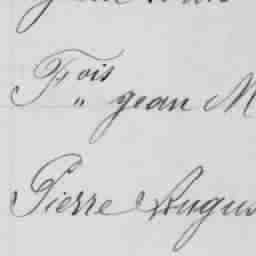 Fois
" gean M
Pierre Augus